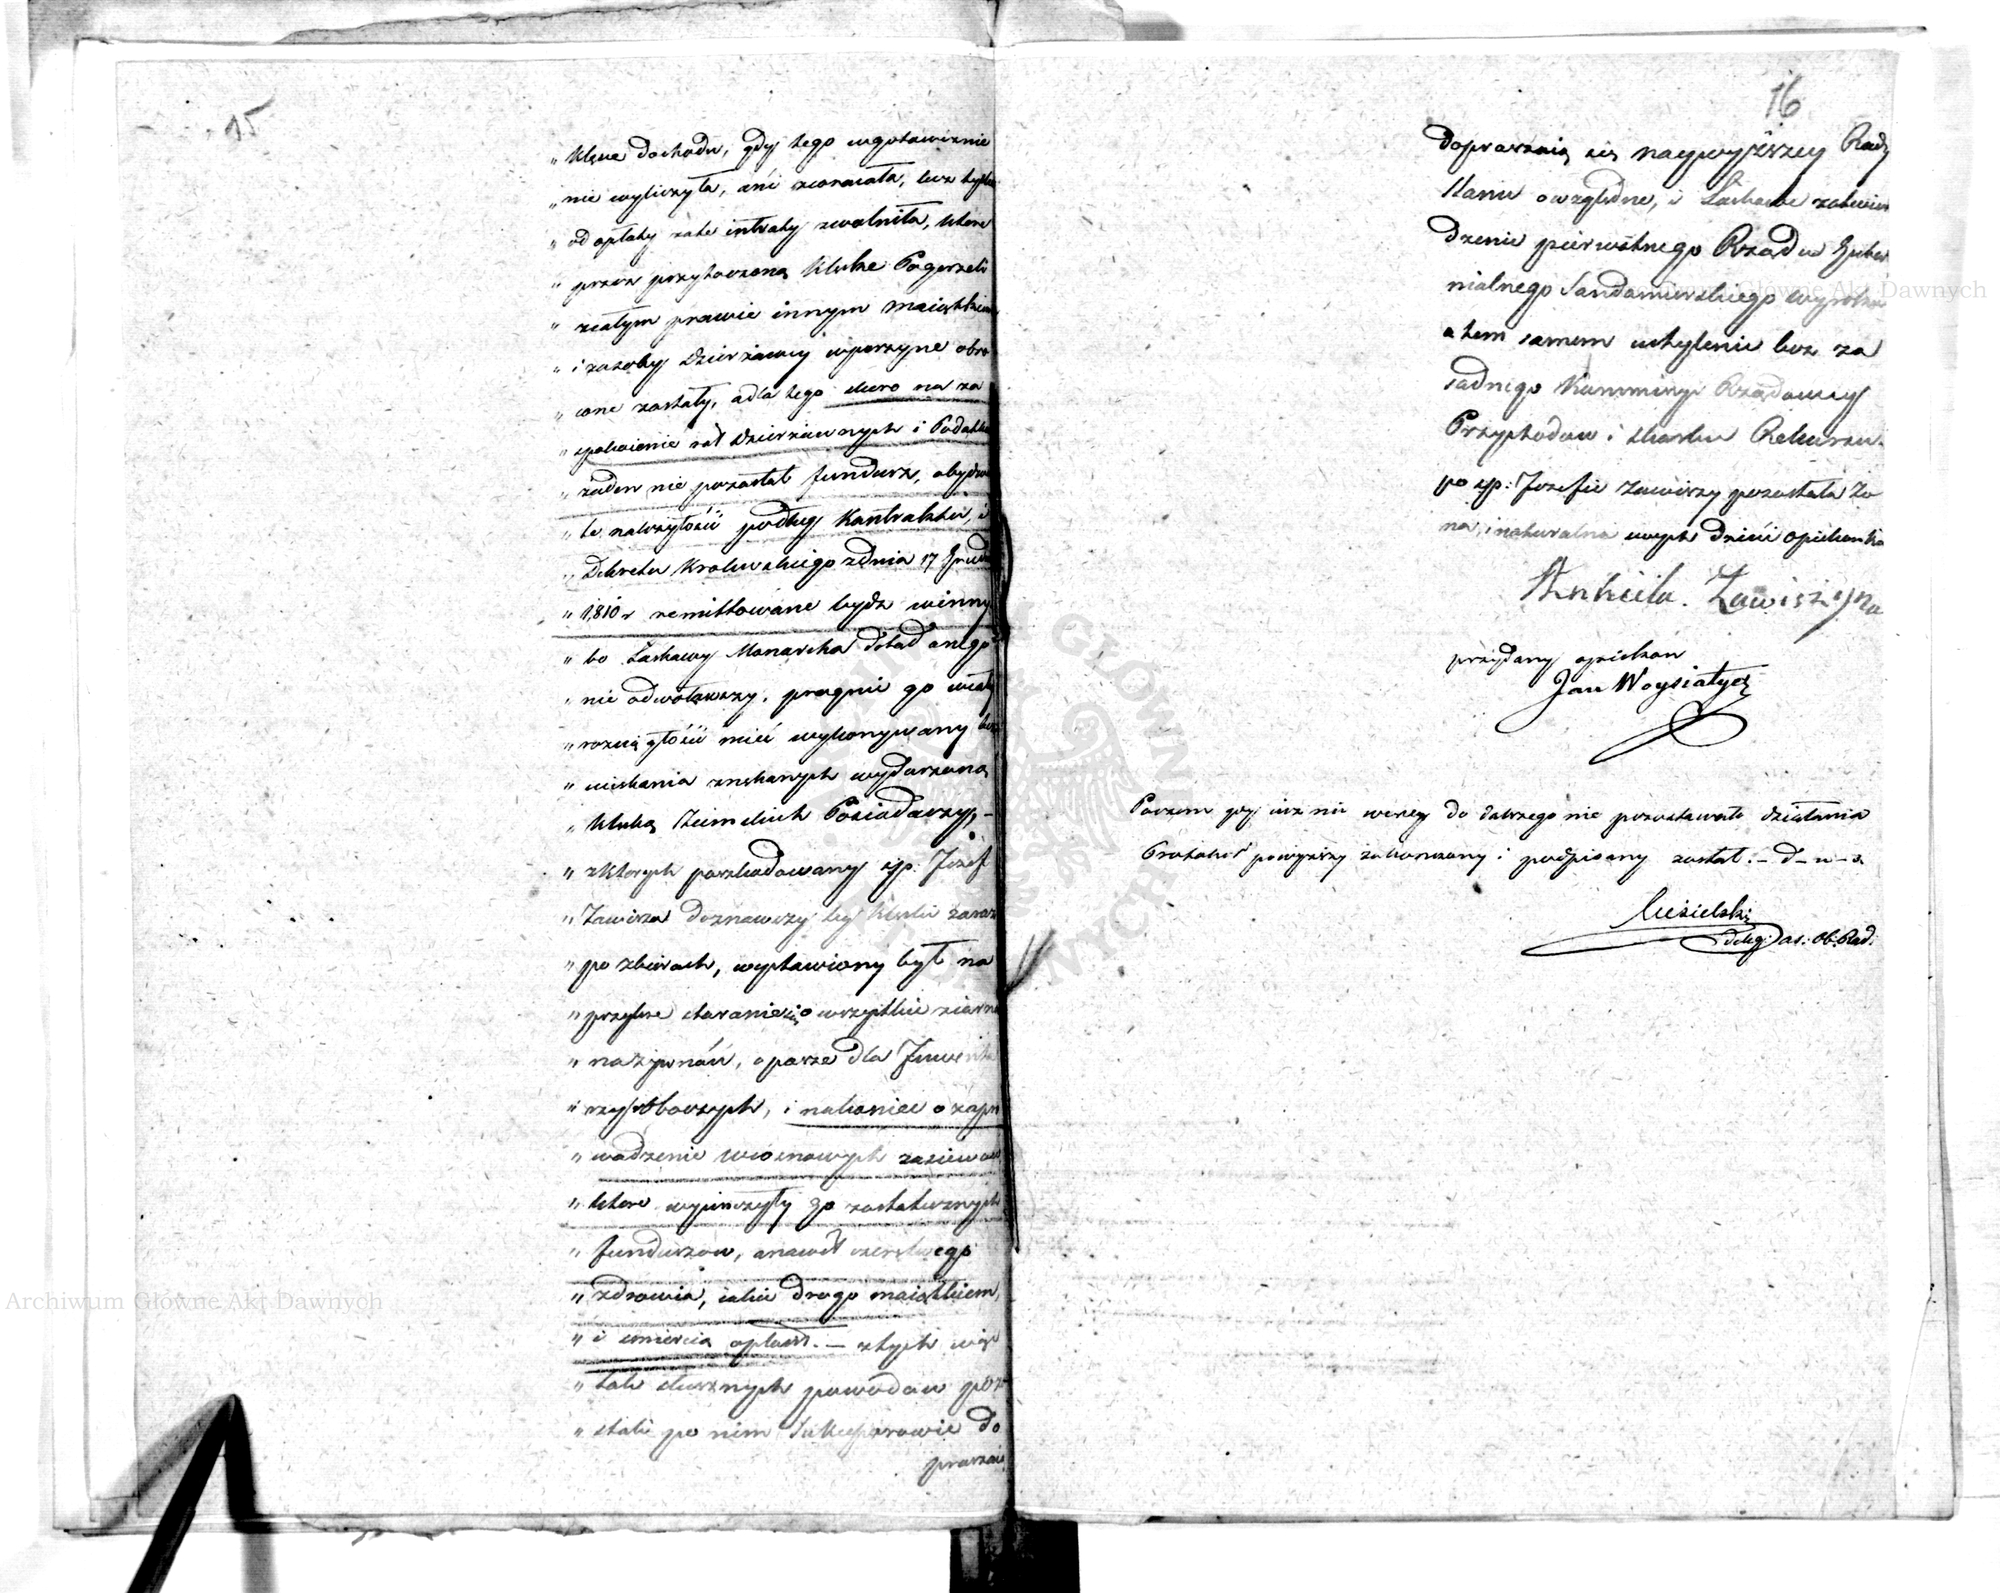 15
„ klęne dochodu, gdy tego wgotowiznie
„ nie wyliczyła, ani zwracała, lecz tylko
„ od opłaty rate intraty zwolniła, które
„ przez przytoczoną Klęskę Pogorzeli
„ zcałym prawie innym maiątkiem
„ i zasoby Dzierżawcy wperzynę obró
„ cone zostały, a dla tego skoro na za
„ spokoienie rat Dzierżawnych i Podatku
„ żaden nie pozostał fundusz, obydwa
„ te należytości podług Kontraktu, i
„ Dekretu Królewskiego zdnia 17 Grudnia
„ 1,810 r remittowane bydz winny
„ bo Łaskawy Monarcha dotąd onego
„ nie odwoławszy, pragnie go wcałey
„ rozciągłości mieć wykonywany bez
„ uciskania znękanych wydarzoną
„ klęską Ziemskich Posiadaczy,
„ zktórych poszkodowany śp. Józef
„ Zawisza doznawszy tey klęski zaraz
„ po zbiorach, wystawiony był na
„ przykre staranie się o wszystkie ziarna
„ na żywność, o paszę dla Inwenta
„ rzy roboczych, i nakoniec o zapro
„ wadzenie wiosnowych zasiewów
„ które wyniszczyły go zostatecznych
„ funduszów, a nawet czerstwego
„ zdrowia, iakie drogo maiątkiem,
„ i śmiercią opłacił. — ztych więc
„ tak słusznych powodów pozo
„ stali po nim Sukcessorowie do
praszaią
16
Dopraszaią się naywyższey Rady
Stanu o względne, i Łaskawe zatwier
dzenie pierwotnego Rządu Guber
nialnego Sandomierskiego wyroku
a tem samem uchylenie bez za
sadnego Kommissyi Rządowey
Przychodów i Skarbu Rekursu.
po śp: Józefie Zawiszy pozostała Żo
na, i naturalna swych dzieci opiekunka
Anniela Zawiszyna
przydany opiekun
Jan Woysiatycz
Poczem gdy iuż nic więcey do dalszego nie pozostawało działania
Protokół powyższy zakończony i podpisany został. — d — u — s.
Ciesielski
deleg: as: Ob: Rad:
Archiwum Główne Akt Dawnych
Archiwum Główne Akt Dawnych